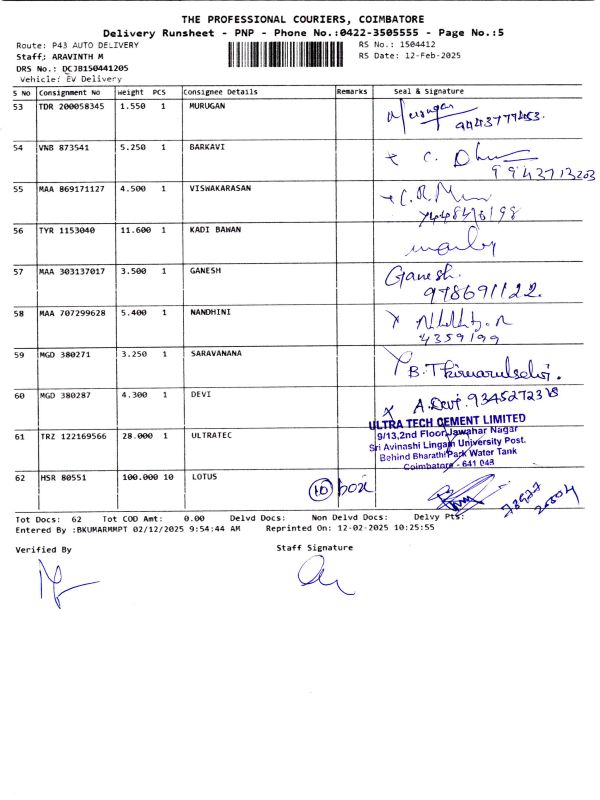 THE PROFESSIONAL COURIERS, COIMBATORE
Delivery Runsheet - PNP - Phone No.:0422-3505555 - Page No.:5
Route: P43 AUTO DELIVERY
RS No.: 1504412
Staff: ARAVINTH M
RS Date: 12-Feb-2025
DRS No.: DCJB150441205
Vehicle: EV Delivery
S No Consignment No Weight PCS Consignee Details Remarks Seal & Signature
53 TDR 200058345 1.550 1 MURUGAN Murugan
9443777453.
54 VNB 873541 5.250 1 BARKAVI
9943713203
55 MAA 869171127 4.500 1 VISWAKARASAN
56 TYR 1153040 11.600 1 KADI BAWAN
57 MAA 303137017 3.500 1 GANESH Ganesh.
978691122.
58 MAA 707299628 5.400 1 NANDHINI
4359199
59 MGD 380271 3.250 1 SARAVANANA
60 MGD 380287 4.300 1 DEVI A. Devi.
ULTRA TECH CEMENT LIMITED
9/13,2nd Floor,Jawahar Nagar
61 TRZ 122169566 28.000 1 ULTRATEC Sri Avinashi Lingam University Post.
Behind Bharathi Park Water Tank
Coimbatore - 641 043
62 HSR 80551 100.000 10 LOTUS
10 box
Tot Docs: 62 Tot COD Amt: 0.00 Delvd Docs: Non Delvd Docs: Delvy Pts:
Entered By :BKUMARMMPT 02/12/2025 9:54:44 AM Reprinted On: 12-02-2025 10:25:55
Verified By Staff Signature